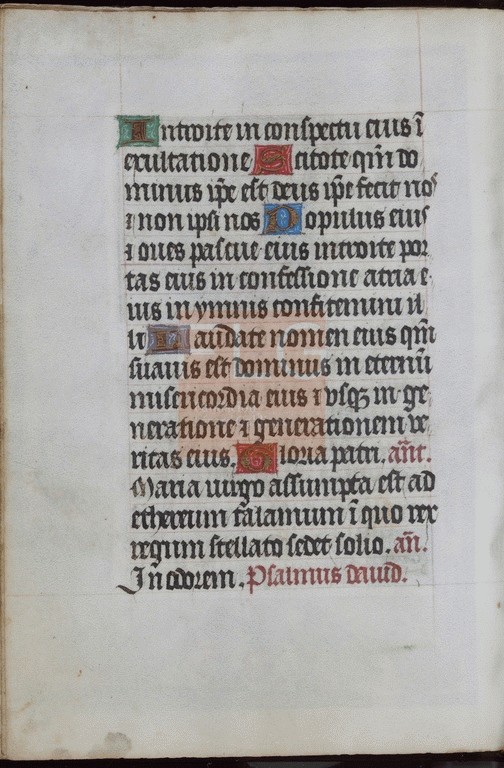 Introite in conspectu eius ī
exultatione Scitote qm̄ do
minus ip̄e est deus ip̄e fecit nos
⁊ non ipsi nos Populus eius
⁊ oues pascue eius introite por
tas eius in confessione atria e
ius in ymnis confitemini il
li Laudate nomen eius qm̄
suauis est dominus in eternū
misericordia eius ⁊ vsqꝫ in ge
neratione ⁊ generationem ve
ritas eius. Gloria patri. an̄t.
Maria uirgo assumpta est ad
ethereum talamum ī quo rex
regum stellato sedet solio. an̄.
In odorem. Psalmus dauid.